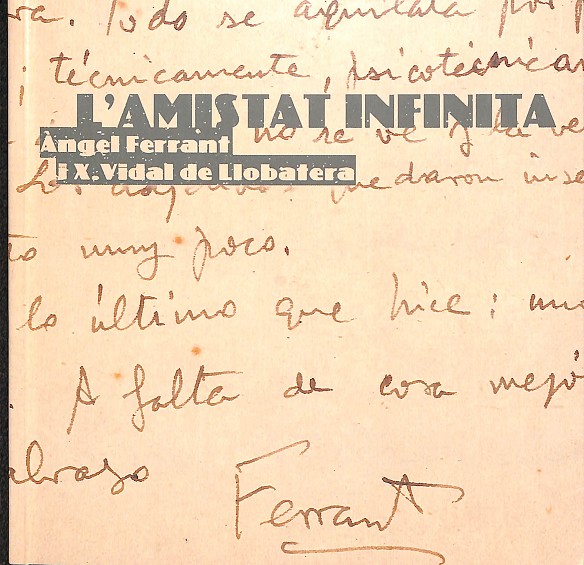 ra. Todo se aquilata por p
i técnicamente, psicotécnicam
L'AMISTAT INFINITA
no se ve y la ve
Àngel Ferrant
i X. Vidal de Llobatera
Los quedaron inse
to muy poco.
lo último que hice; una
A falta de cosa mejo
abrazo
Ferrant